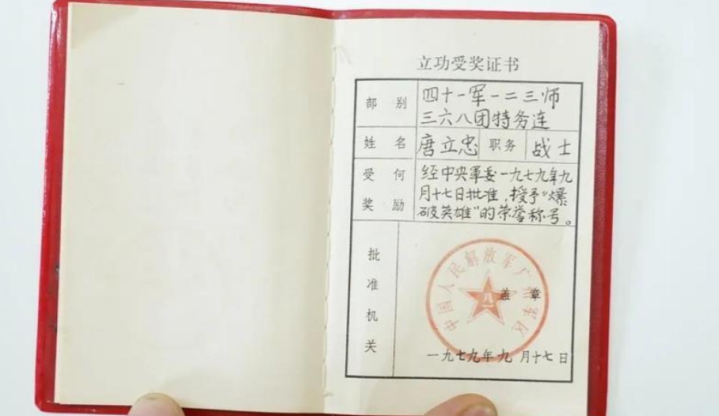 立功受奖证书
部别 四十一军一二三师
三六八团特务连
姓名 唐立忠 职务 战士
受何奖励 经中央军委一九七九年九
月十七日批准,授予"爆
破英雄"的荣誉称号。
批准机关
中国人民解放军广州军区
八一
盖章
一九七九年九月十七日